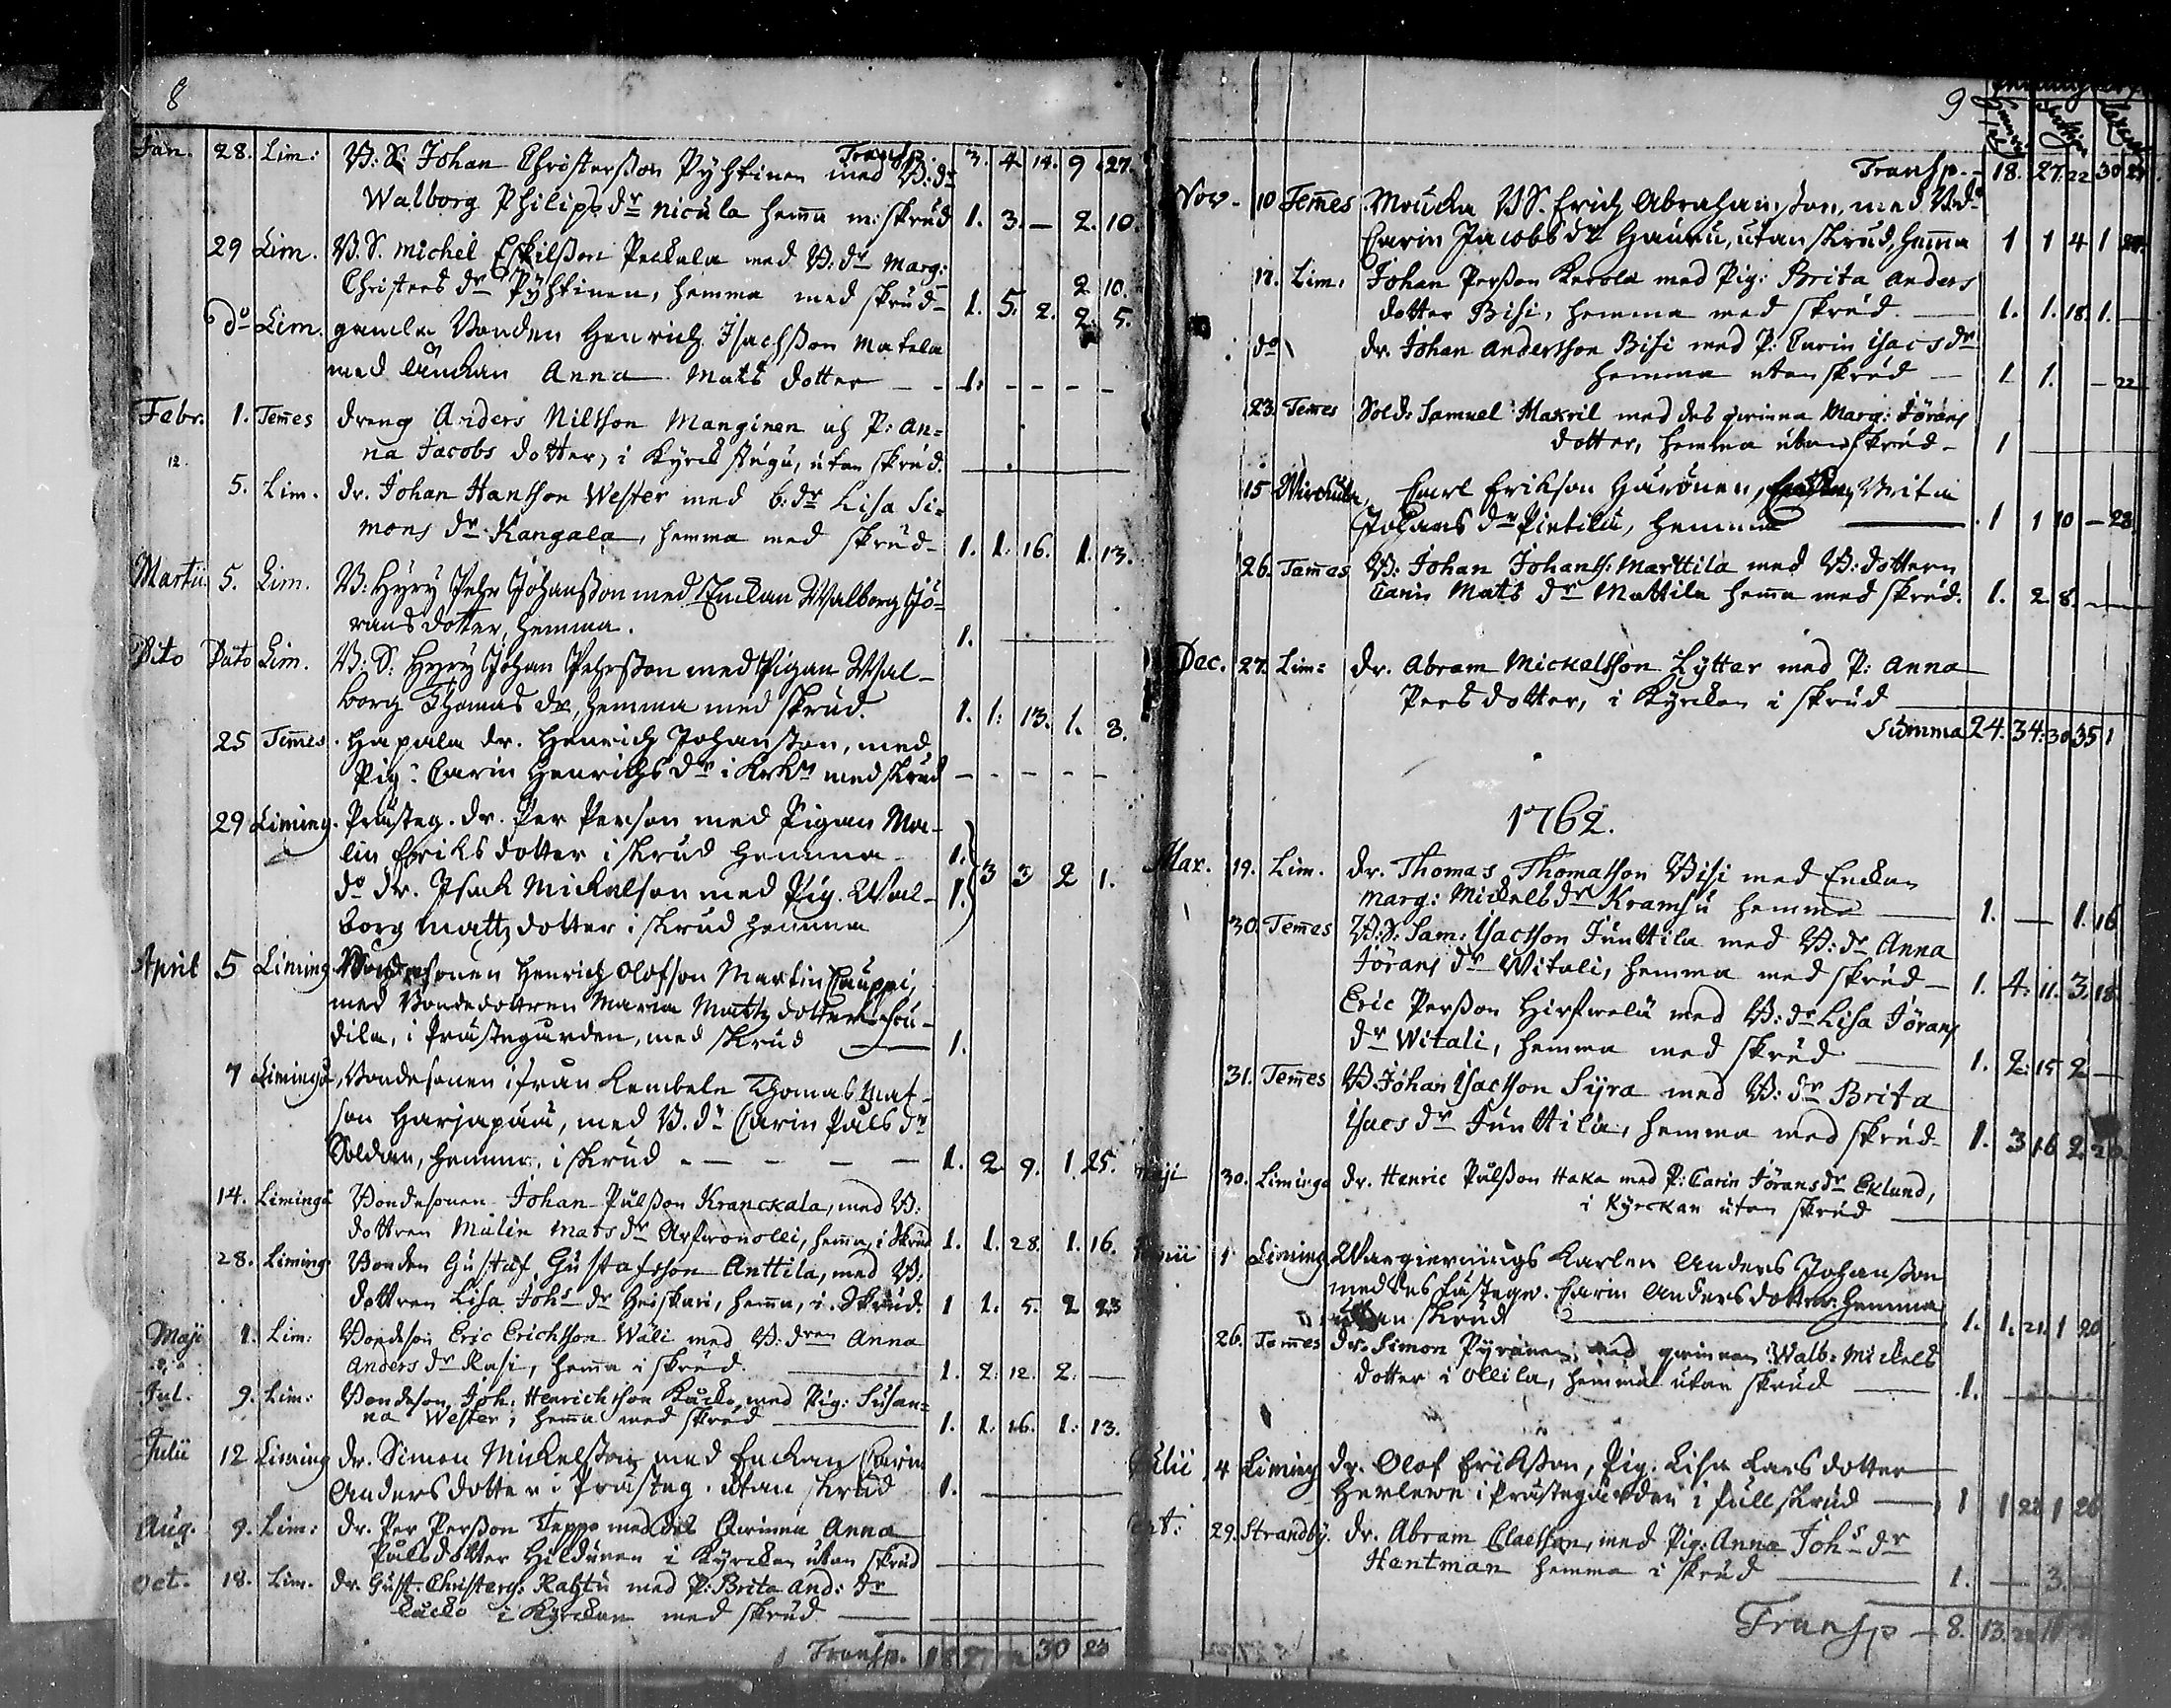 8
Transp. 3. 4. 14. 9 27.
Jan. 28. Lim: B: S: Johan Christersson Pyhtinen med B: dr
Walborg Philips dr Nicula hema m: skrud 1. 3. — 2. 10.
29 Lim. B. S. Michel Eskilsson Peckala med B: dr Marg:
Christers dr Pyhtinen, hemma med skrud 1. 5. 2. 2. 5.
2 10.
do Lim. gamla Bonden Henrich Isachsson Matela
med Änckan Anna Mats dotter — — 1. — — — —
Febr. 1. Temes dreng Anders Nilsson Manginen och P: An=
12. na Jacobs dotter, i Kyrck stugu, utan skrud.
5. Lim. dr. Johan Hansson Wester med b: dr Lisa Si=
mons dr Kangala, hemma med skrud 1. 1. 16. 1. 13.
Martii 5. Lim. B: Hyry Pehr Johansson med Enckan Walborg Jö-
rans dotter, hemma. 1.
Dito Dato Lim. B: S: Hyry Johan Pehrsson med Pigan Wal-
borg Thomas dr, hemma med skrud. 1. 1. 13. 1. 3.
25 Temes. Hapala dr. Henrich Johansson, med
Pig: Carin Henrichs dr i Krkn med skrud — — — — —
29 Liming. Prästeg. dr. Per Person med Pigan Ma-
lin Eriks dotter i skrud hemma 1.
do dr. Isack Mickelson med Pig. Wal- 1. 3 3 2 1.
borg Matts dotter i skrud hemma
April 5 Liming Bondesonen Henrich Olofson Martin Cauppi,
med Bondedottren Maria Matts dotter
dila, i Prästegården, med skrud 1.
7 Liminga, Bondesonen ifrån Kembele Thomas Mat-
son Harjapää, med B. dr Carin Påls dr
Soldan, hemma, i skrud — — — 1. 2 9. 1. 25.
14. Liminga Bondesonen Johan Pålsson Kranckala, med B:
dottren Malin Mats dr Arfwonolli, hema, i Skrud 1. 1. 28. 1. 16.
28. Liming. Bonden Gustaf Gustafsson Anttila, med B:
dottren Lisa Johs dr Heiskari, hema, i Skrud. 1 1. 5. 2 23
Maji 1. Lim: Bondeson Eric Erichsson Wäli med B: dren Anna
Anders dr Rasi, hema i skrud 1. 2. 12. 2. —
Jul. 9. Lim: Bondeson Joh. Henrichsson Kåcko med Pig: Susan=
na Wester, hema med skrud 1. 1. 16. 1. 13.
Julii 12 Liming dr. Simon Mickelsson med Enckan Carin
Anders dotter i Prästeg. utan skrud 1. —
Aug. 9. Lim: dr. Per Persson Teppo med des Qwinna Anna
Påls dotter Hildunen i Kyrckan utan skrud
Oct. 18. Lim. dr. Gust. Christers: Rahtu med P: Brita And: dr
Kåcko i Kyrckan med skrud
Transp. 18 27 22 30 23
9
Transp. 18. 27. 22 30 23
Nov. 10 Temes Moucka B S. Erich Abrahamsson, med B: dr
Carin Jacobs dr Hauru, utan skrud, hema 1 1 4 1
17. Lim: Johan Persson Kerola med Pig: Brita Anders
dotter Bisi, hemma med skrud. 1. 1. 18. 1. —
do dr. Johan Andersson Bisi med P: Carin Isacs dr
hemma utan skrud 1. 1. — 22
23. Temes Sold: Samuel Makril med des qwinna Marg: Jörans
dotter, hemma utan skrud 1
15 Wirckula, Carl Erikson Harönen, Brita
Johans dr Pietilä, hemma 1 1 10 — 28.
26. Tammes B: Johan Johans: Marttila med B: dottern
Carin Mats dr Mattila hema med skrud. 1. 2. 8. —
Dec. 27. Lim: dr. Abram Mickelsson Lytter med P: Anna
Pers dotter, i Kyrckan i skrud
Summa 24. 34. 30 35 1
1762.
Mar. 19. Lim. dr. Thomas Thomasson Bisi med Enckan
Marg: Mickels dr Kramsu hemma 1. — 1. 16
30. Temes B: S: Sam: Isacsson Junttila med B: dr Anna
Jörans dr Witali, hemma med skrud 1. 4. 11. 3. 18.
Eric Persson Hirswelä med B: dr Lisa Jörans
dr Witali, hemma med skrud 1. 2: 15 2 —
31. Temes B. Johan Isacsson Syra med B: dr Brita
Isacs dr Junttila, hemma med skrud 1. 3 16 2
Maji 30. Liminga dr. Henric Pålsson Haka med P: Carin Jörans dr Eklund,
i Kyrckan utan skrud
Junii 1 Liming Wargiernings Karlen Anders Johansson
med des fästeqw. Carin Anders dotter hemma
utan skrud 1. 1. 21. 1 20
26. Temmes dr. Simon Pyrönen med qwinnan Walb: Mickels
dotter i Ollila, hemma utan skrud 1.
Julii 4 Liming dr. Olof Eriksson, Pig. Lisa Lars dotter
Herlewi i Prästegården i full skrud 1 1 28 1 26
29. Strandby. dr. Abram Claesson, med Pig: Anna Johs dr
Hentman hemma i skrud 1. — 3. —
Transp 8. 13.